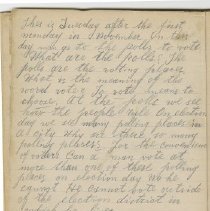 This is Tuesday after the first
monday in November. On this
day men go to the polls to vote.
What are the polls? The
polls are the voting places.
What is the meaning of the
word vote? To vote means to
choose. At the polls we see
how the people rule. On election
day we see many polling places in
a city. Why are there so many
polling places? For the convenience
of voters. Can a man vote at
more than one of these polling
places on election day? No he
cannot. He cannot vote outside
of the election district in